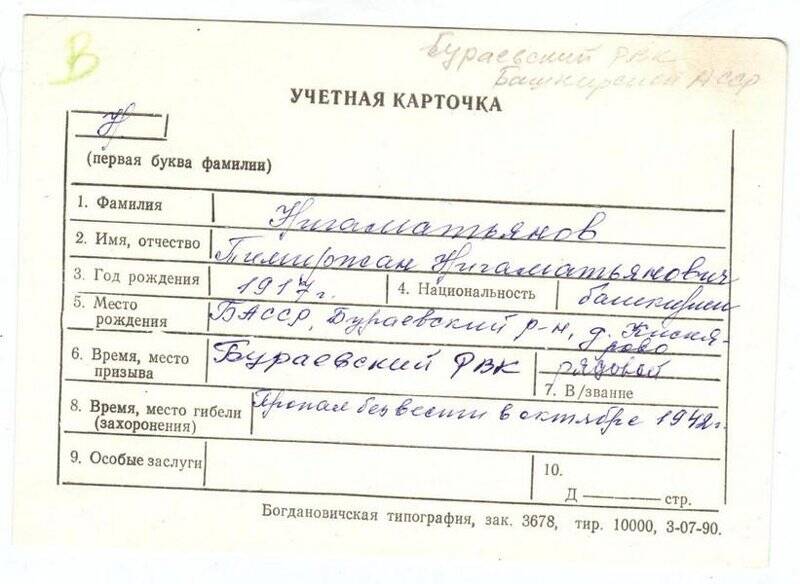 В
Бураевский РВК
Башкирская АССР
УЧЕТНАЯ КАРТОЧКА
Н
(первая буква фамилии)
1. Фамилия Нигаматьянов
2. Имя, отчество Тимиржан Нигаматьянович
3. Год рождения 1917 г. 4. Национальность башкирин
5. Место рождения БАССР, Бураевский р-н, д. Кискя-
рово
6. Время, место призыва Бураевский РВК рядовой
7. В/звание
8. Время, место гибели Пропал без вести в октябре 1942 г.
(захоронения)
9. Особые заслуги 10.
Д ——— стр.
Богдановичская типография, зак. 3678, тир. 10000, 3-07-90.